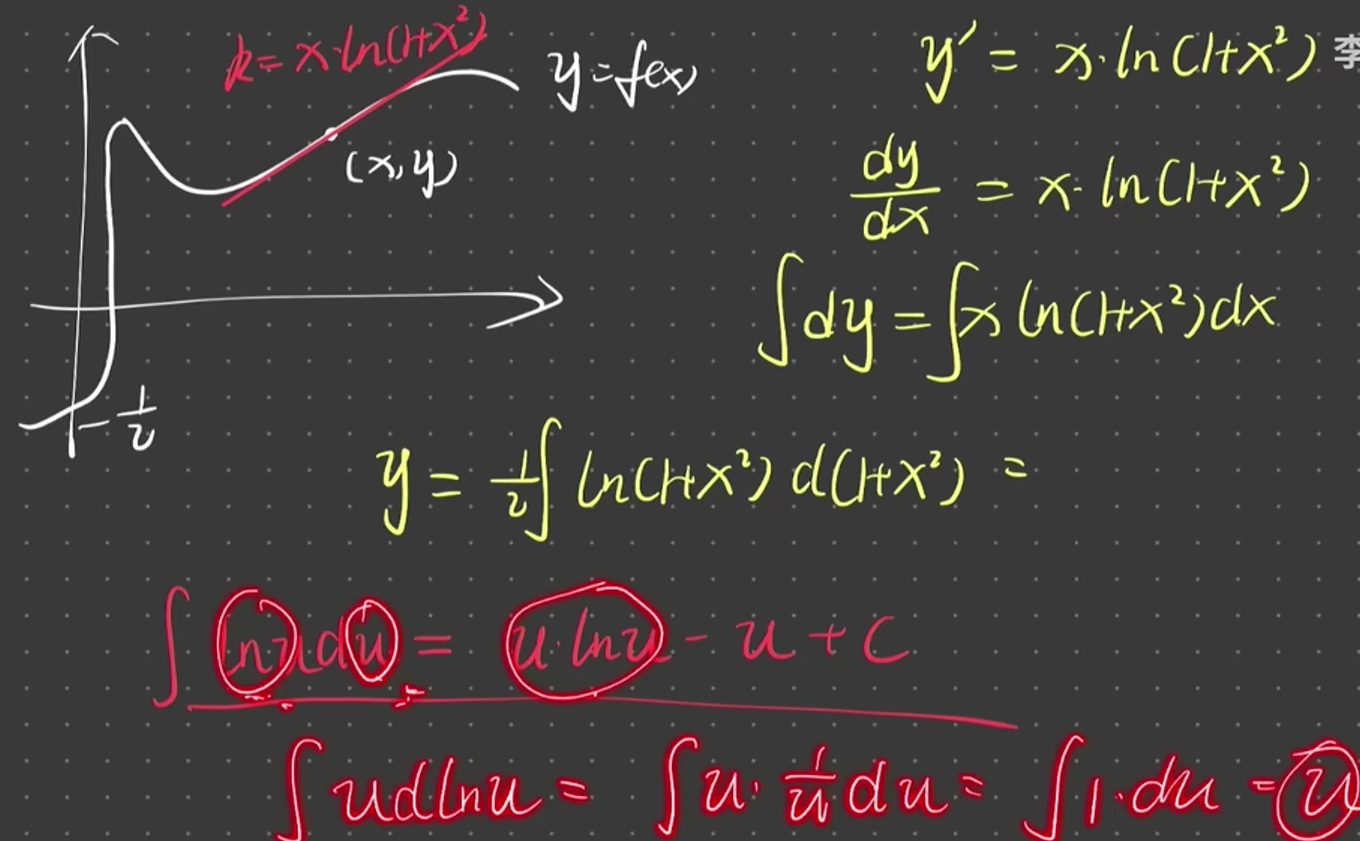 k = x·ln(1+x²)
y = f(x)
(x, y)
-1/2
y′ = x·ln(1+x²)
李
dy/dx = x·ln(1+x²)
∫dy = ∫x ln(1+x²)dx
y = 1/2∫ln(1+x²)d(1+x²) =
∫lnudu = u·lnu - u + C
∫udlnu = ∫u·1/u du = ∫1·du = u